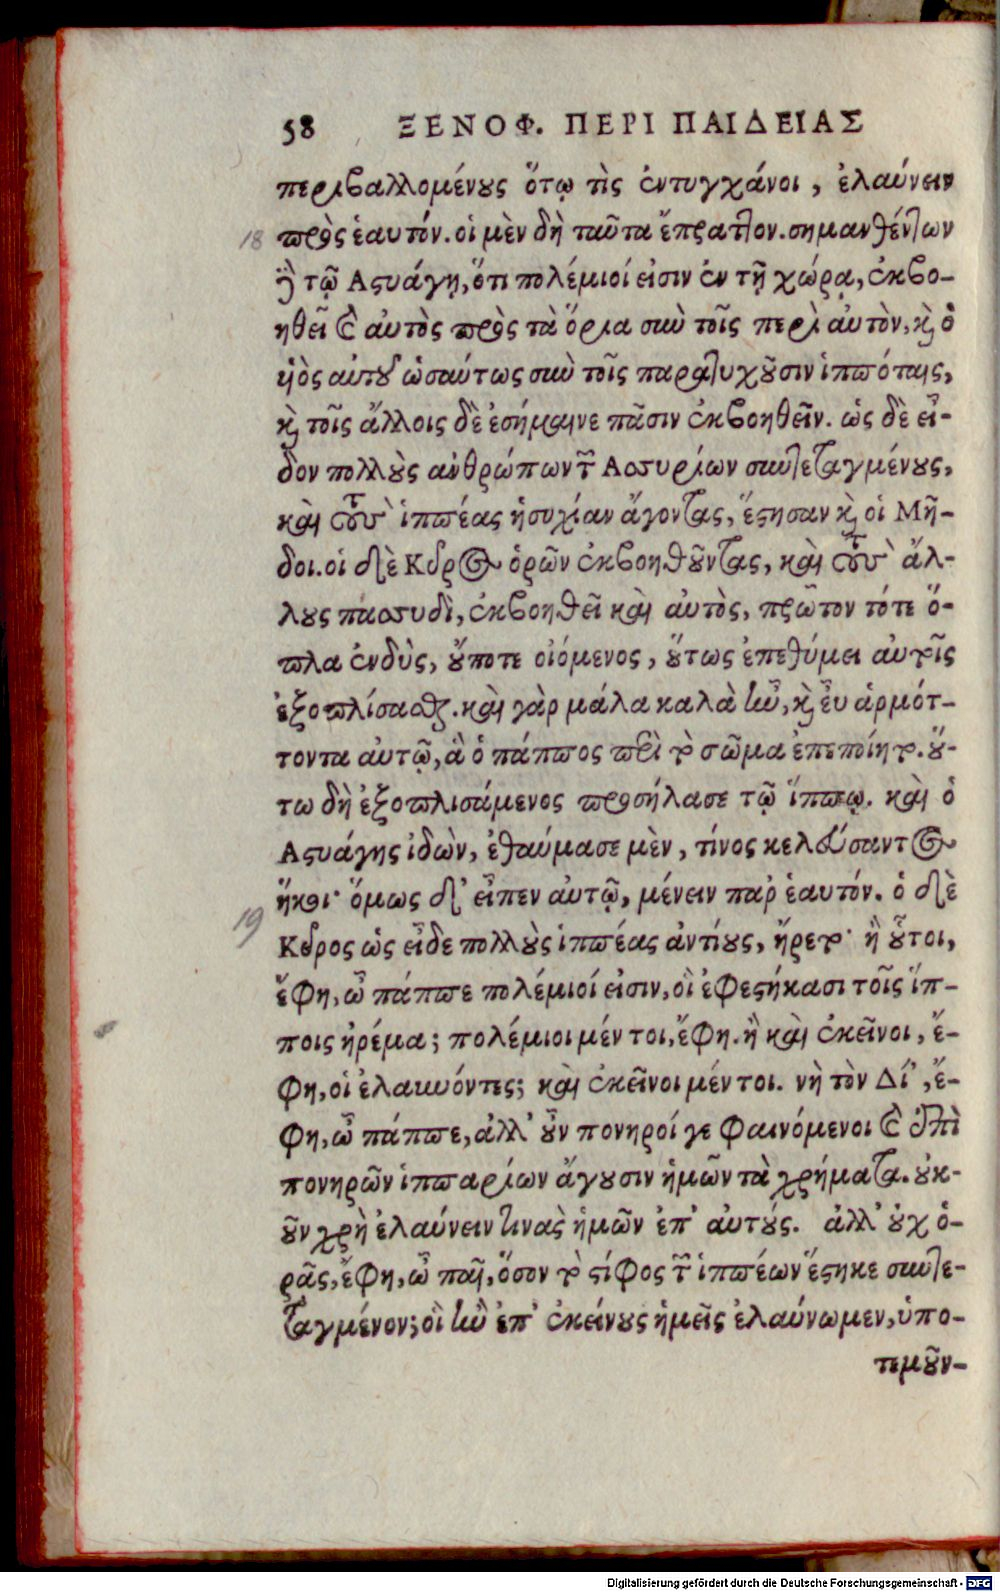 58 ΞΕΝΟΦ. ΠΕΡΙ ΠΑΙΔΕΙΑΣ
περιβαλλομένους ὅτῳ τὶς ἐντυγχάνοι, ἐλαύνειν
18 πρὸς ἑαυτόν. οἱ μὲν δὴ ταῦτα ἔπρατλον. σημανθέντων
ἢ τῷ Ἀστυάγῃ, ὅτι πολέμιοί εἰσιν ἐν τῇ χώρᾳ, ἐκβο-
ηθεῖ καὶ αὐτὸς πρὸς τὰ ὅρια σὺν τοῖς περὶ αὐτὸν, καὶ ὁ
ὑιὸς αὐτοῦ ὡσαύτως σὺν τοῖς παρατυχοῦσιν ἱππόταις,
καὶ τοῖς ἄλλοις δὲ ἐσήμαινε πᾶσιν ἐκβοηθεῖν. ὡς δὲ εἶ-
δον πολλοὺς ἀνθρώπων τῶν Ἀσσυρίων συντεταγμένους,
καὶ τοὺς ἱππέας ἡσυχίαν ἄγοντας, ἔστησαν καὶ οἱ Μῆ-
δοι. οἱ δὲ Κῦρος ὁρῶν ἐκβοηθοῦντας, καὶ τοὺς ἄλ-
λους πασσυδὶ, ἐκβοηθεῖ καὶ αὐτὸς, πρῶτον τότε ὅ-
πλα ἐνδὺς, οὔποτε οἰόμενος, οὕτως ἐπεθύμει αὐτοῖς
ἐξοπλίσασθαι. καὶ γὰρ μάλα καλὰ ἦν, καὶ εὖ ἁρμότ-
τοντα αὐτῷ, ἃ ὁ πάππος περὶ τὸ σῶμα ἐπεποίητο. οὕ-
τω δὴ ἐξοπλισάμενος προσήλασε τῷ ἵππῳ. καὶ ὁ
Ἀστυάγης ἰδὼν, ἐθαύμασε μὲν, τίνος κελεύσαντος
ἥκοι· ὅμως δ' εἶπεν αὐτῷ, μένειν παρ' ἑαυτόν. ὁ δὲ
19 Κῦρος ὡς εἶδε πολλοὺς ἱππέας ἀντίους, ἤρετο· ἦ οὗτοι,
ἔφη, ὦ πάππε πολέμιοί εἰσιν, οἳ ἐφεστήκασι τοῖς ἵπ-
ποις ἠρέμα; πολέμιοι μέν τοι, ἔφη. ἦ καὶ ἐκεῖνοι, ἔ-
φη, οἱ ἐλαύνοντες; καὶ ἐκεῖνοι μέν τοι. νὴ τὸν Δί', ἔ-
φη, ὦ πάππε, ἀλλ' οὖν πονηροί γε φαινόμενοι καὶ ἐπὶ
πονηρῶν ἱππαρίων ἄγουσιν ἡμῶν τὰ χρήματα. οὐκ-
οῦν χρὴ ἐλαύνειν τινὰς ἡμῶν ἐπ' αὐτούς. ἀλλ' οὐχ ὁ-
ρᾷς, ἔφη, ὦ παῖ, ὅσον τὸ στίφος τῶν ἱππέων ἕστηκε συντε-
ταγμένον; οἳ ἢν ἐπ' ἐκείνους ἡμεῖς ἐλαύνωμεν, ὑπο-
τεμοῦν-
Digitalisierung gefördert durch die Deutsche Forschungsgemeinschaft - DFG